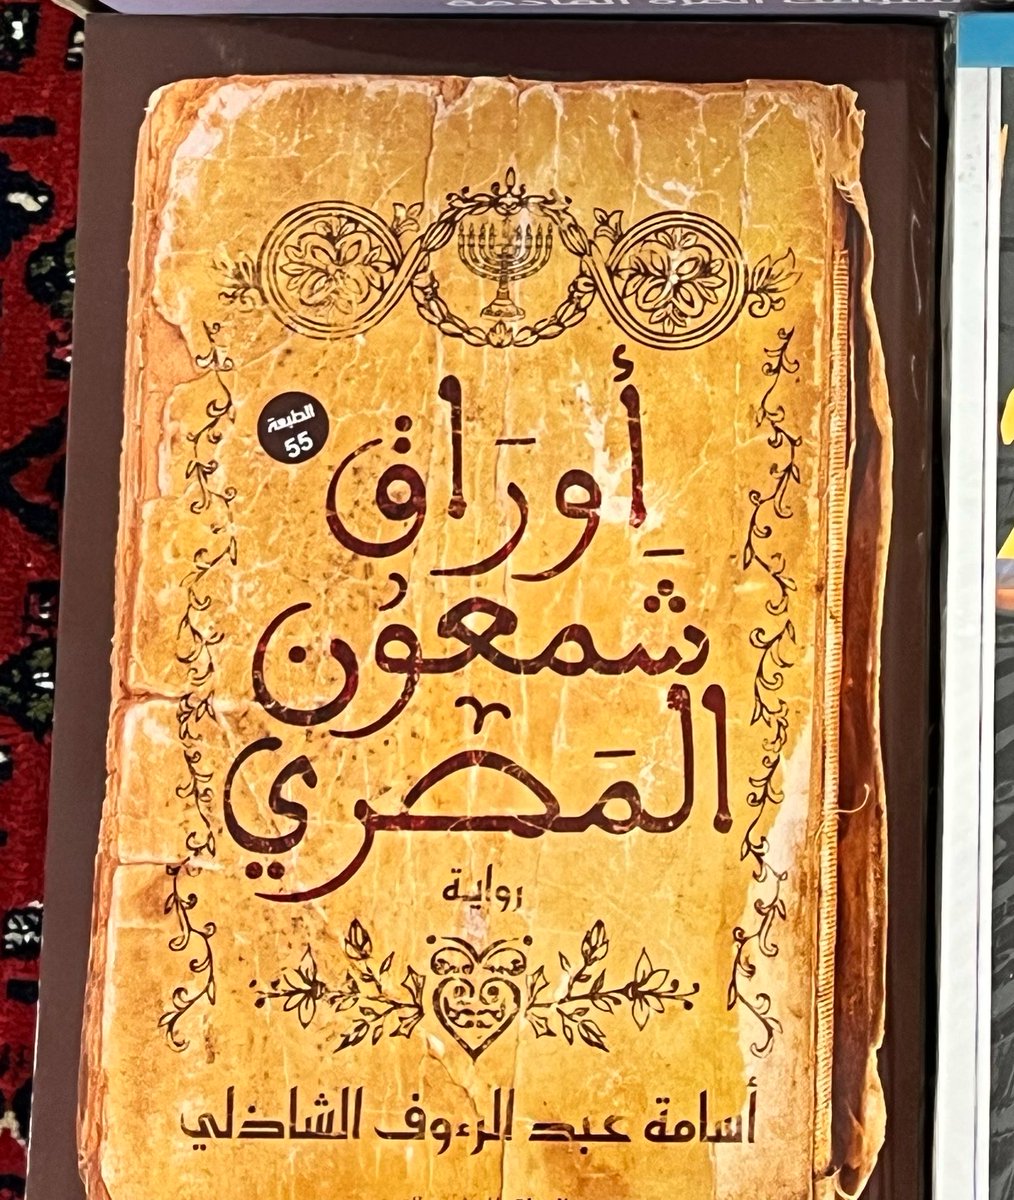 الطبعة
55
أَورَاق
شَمعُون
المَصْري
رواية
أسامة عبد الرءوف الشاذلي